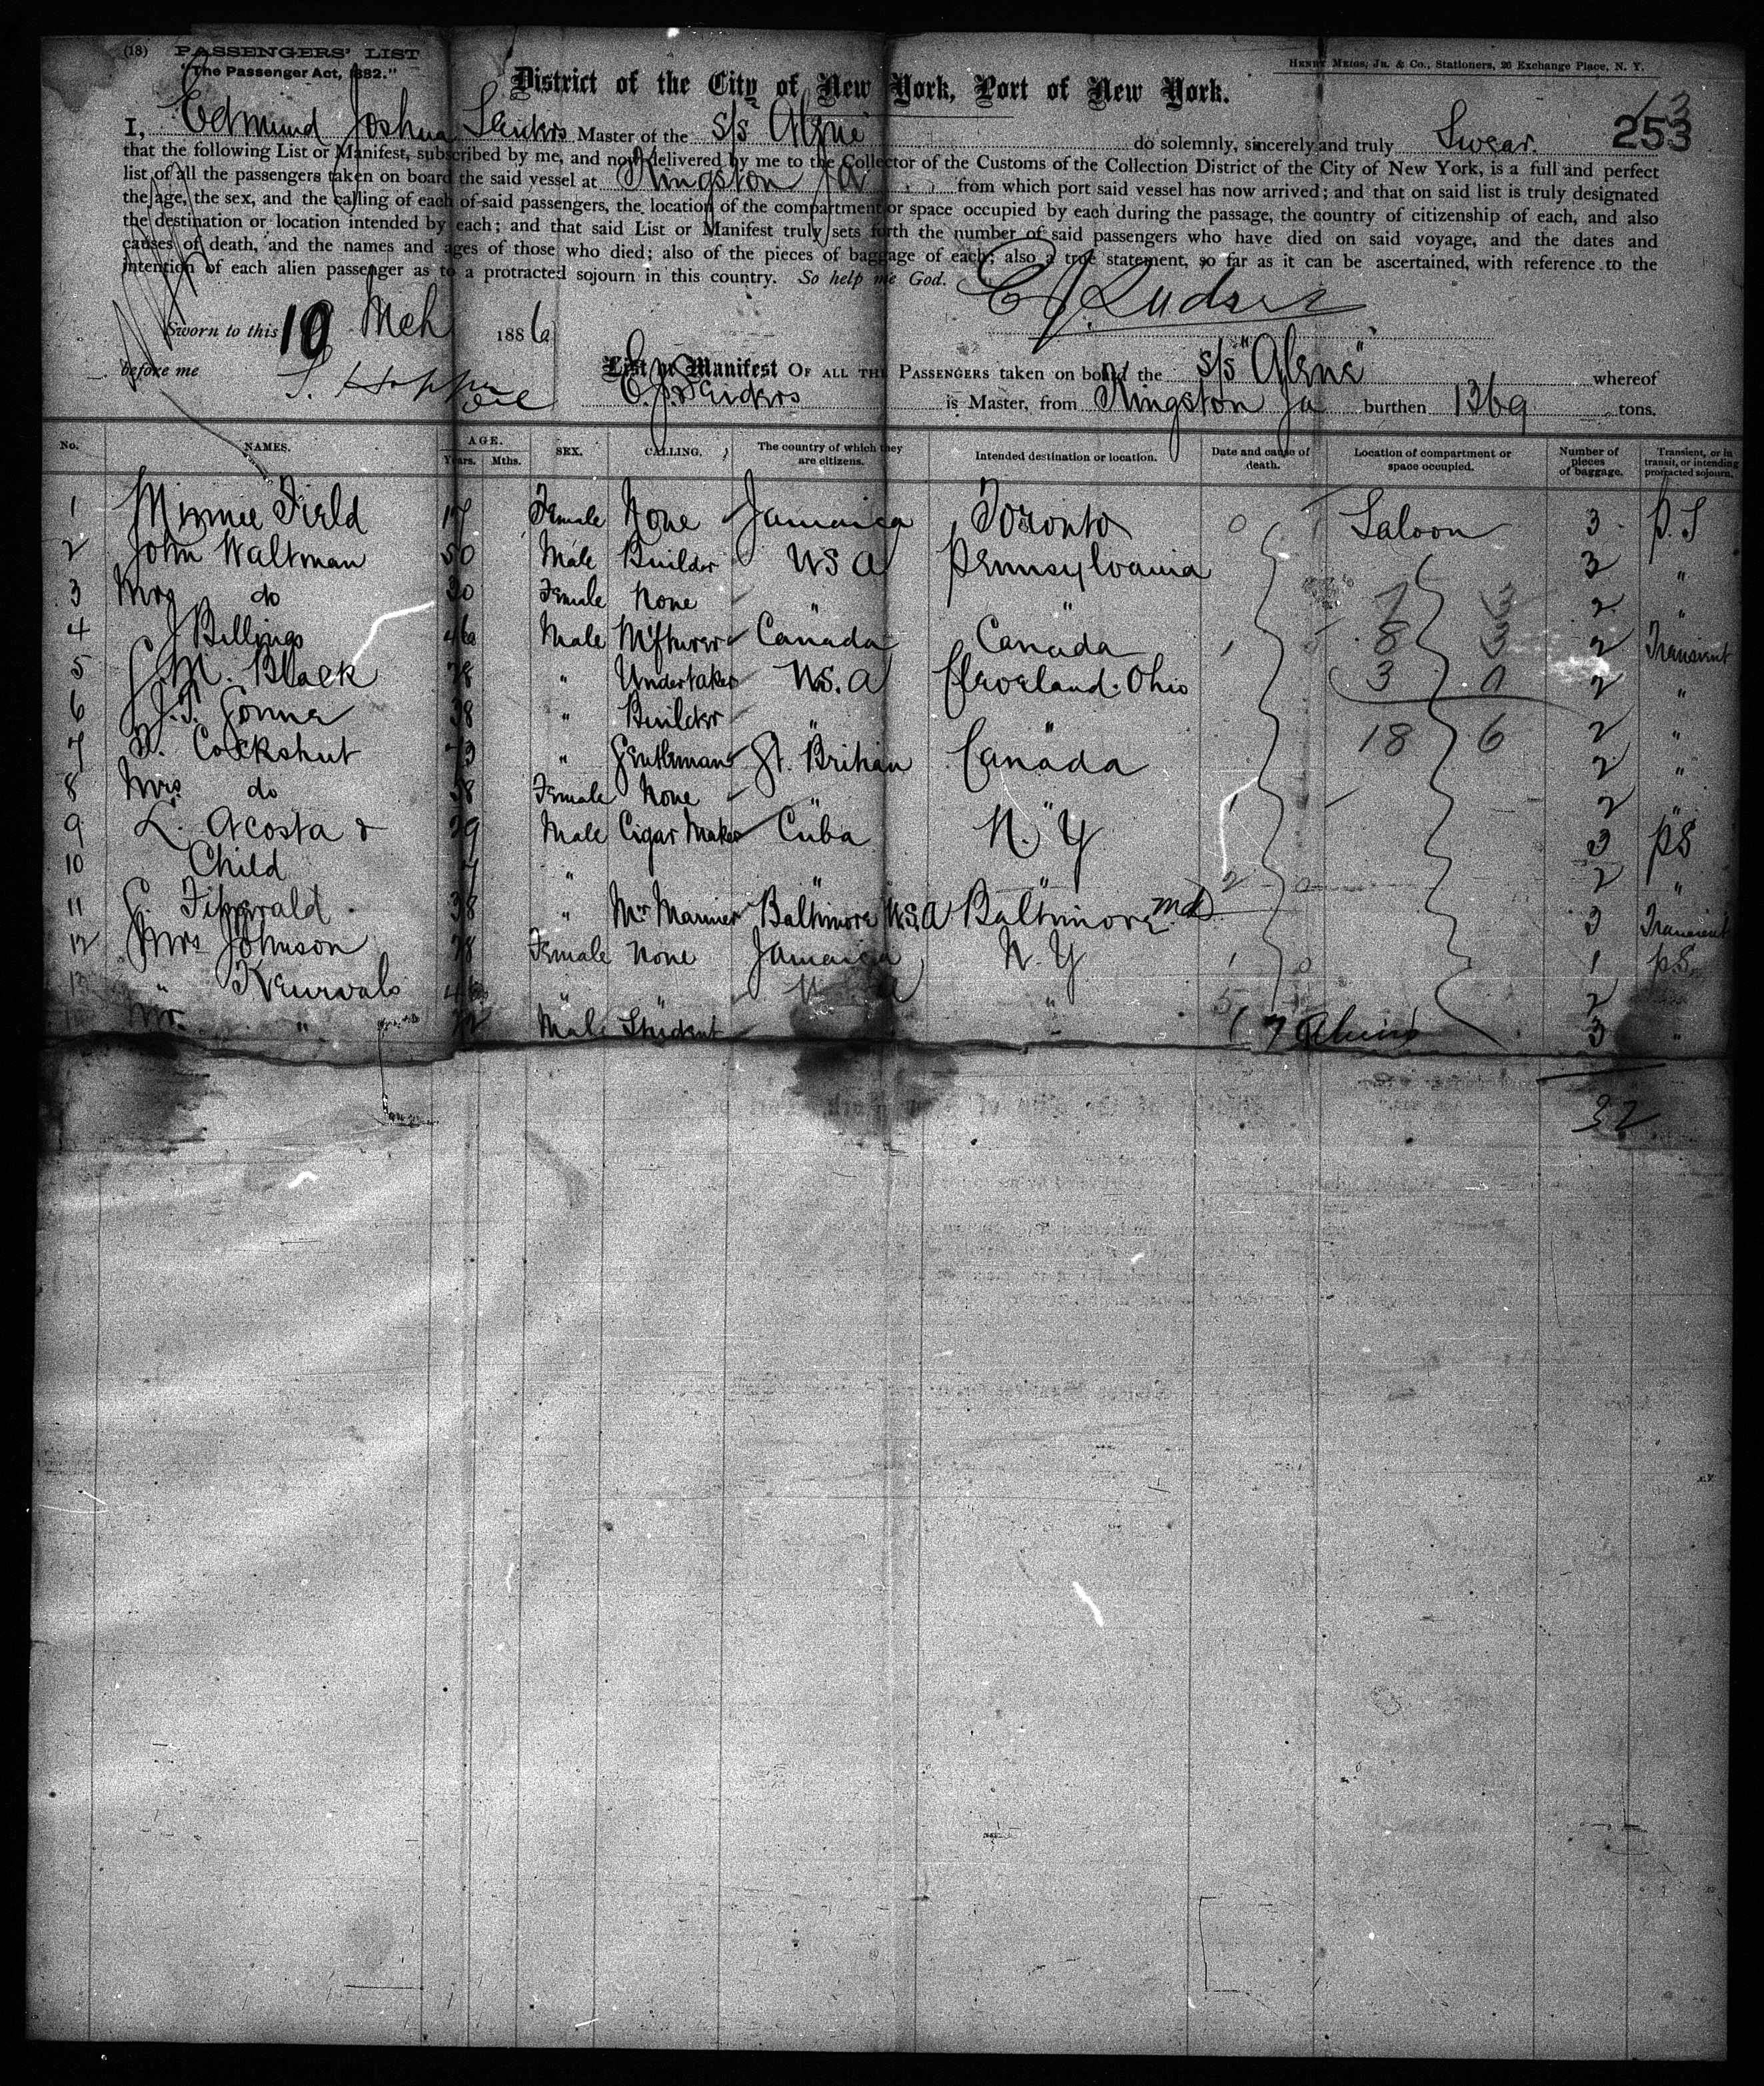 (18) PASSENGERS' LIST
"The Passenger Act, 1882."
HENRY MEIGS, JR. & CO., Stationers, 26 Exchange Place, N. Y.
District of the City of New York, Port of New York.
13
253
I, Edmund Joshua Seiders Master of the S/S Alene do solemnly, sincerely and truly Swear.
that the following List or Manifest, subscribed by me, and now delivered by me to the Collector of the Customs of the Collection District of the City of New York, is a full and perfect
list of all the passengers taken on board the said vessel at Kingston Ja from which port said vessel has now arrived; and that on said list is truly designated
the age, the sex, and the calling of each of said passengers, the location of the compartment or space occupied by each during the passage, the country of citizenship of each, and also
the destination or location intended by each; and that said List or Manifest truly sets forth the number of said passengers who have died on said voyage, and the dates and
causes of death, and the names and ages of those who died; also of the pieces of baggage of each; also a true statement, so far as it can be ascertained, with reference to the
intention of each alien passenger as to a protracted sojourn in this country. So help me God.
Sworn to this 10 Mch 1886
before me
List or Manifest OF ALL THE PASSENGERS taken on board the S/S "Alene" whereof
E. J. Seiders is Master, from Kingston Ja burthen 1369 tons.
No. NAMES. AGE. Years. Mths. SEX. CALLING. The country of which they are citizens. Intended destination or location. Date and cause of death. Location of compartment or space occupied. Number of pieces of baggage. Transient, or in transit, or intending protracted sojourn.
1 Minnie Field 17 Female None Jamaica Toronto 0 Saloon 3 P.S
2 John Waltman 50 Male Builder U S A Pennsylvania 3 "
3 Mrs do 30 Female None " " 7 3 2 "
4 J Billings 46 Male Canada Canada 1 8 3 2 Transient
5 M. Black 38 " Undertaker U.S. A Cleveland. Ohio 3 0 2 "
6 J.T. 38 " Builder " " 18 6 2 "
7 Cockshut 43 " Gentleman Gt. Britian Canada 2 "
8 Mrs do 38 Female None " " 1 2 "
9 L. Acosta & 39 Male Cigar Maker Cuba N. Y 3 PS
10 Child 7 " " " 2 0 2 "
11 38 " Mr Mariner Baltimore U.S.A Baltimore Md 3 Transient
12 Mrs Johnson 28 Female None Jamaica N. Y 1 0 1 p.S.
13 " " 5 2
14 Mr. " 22 Male Student " 17 Aliens 3 "
32